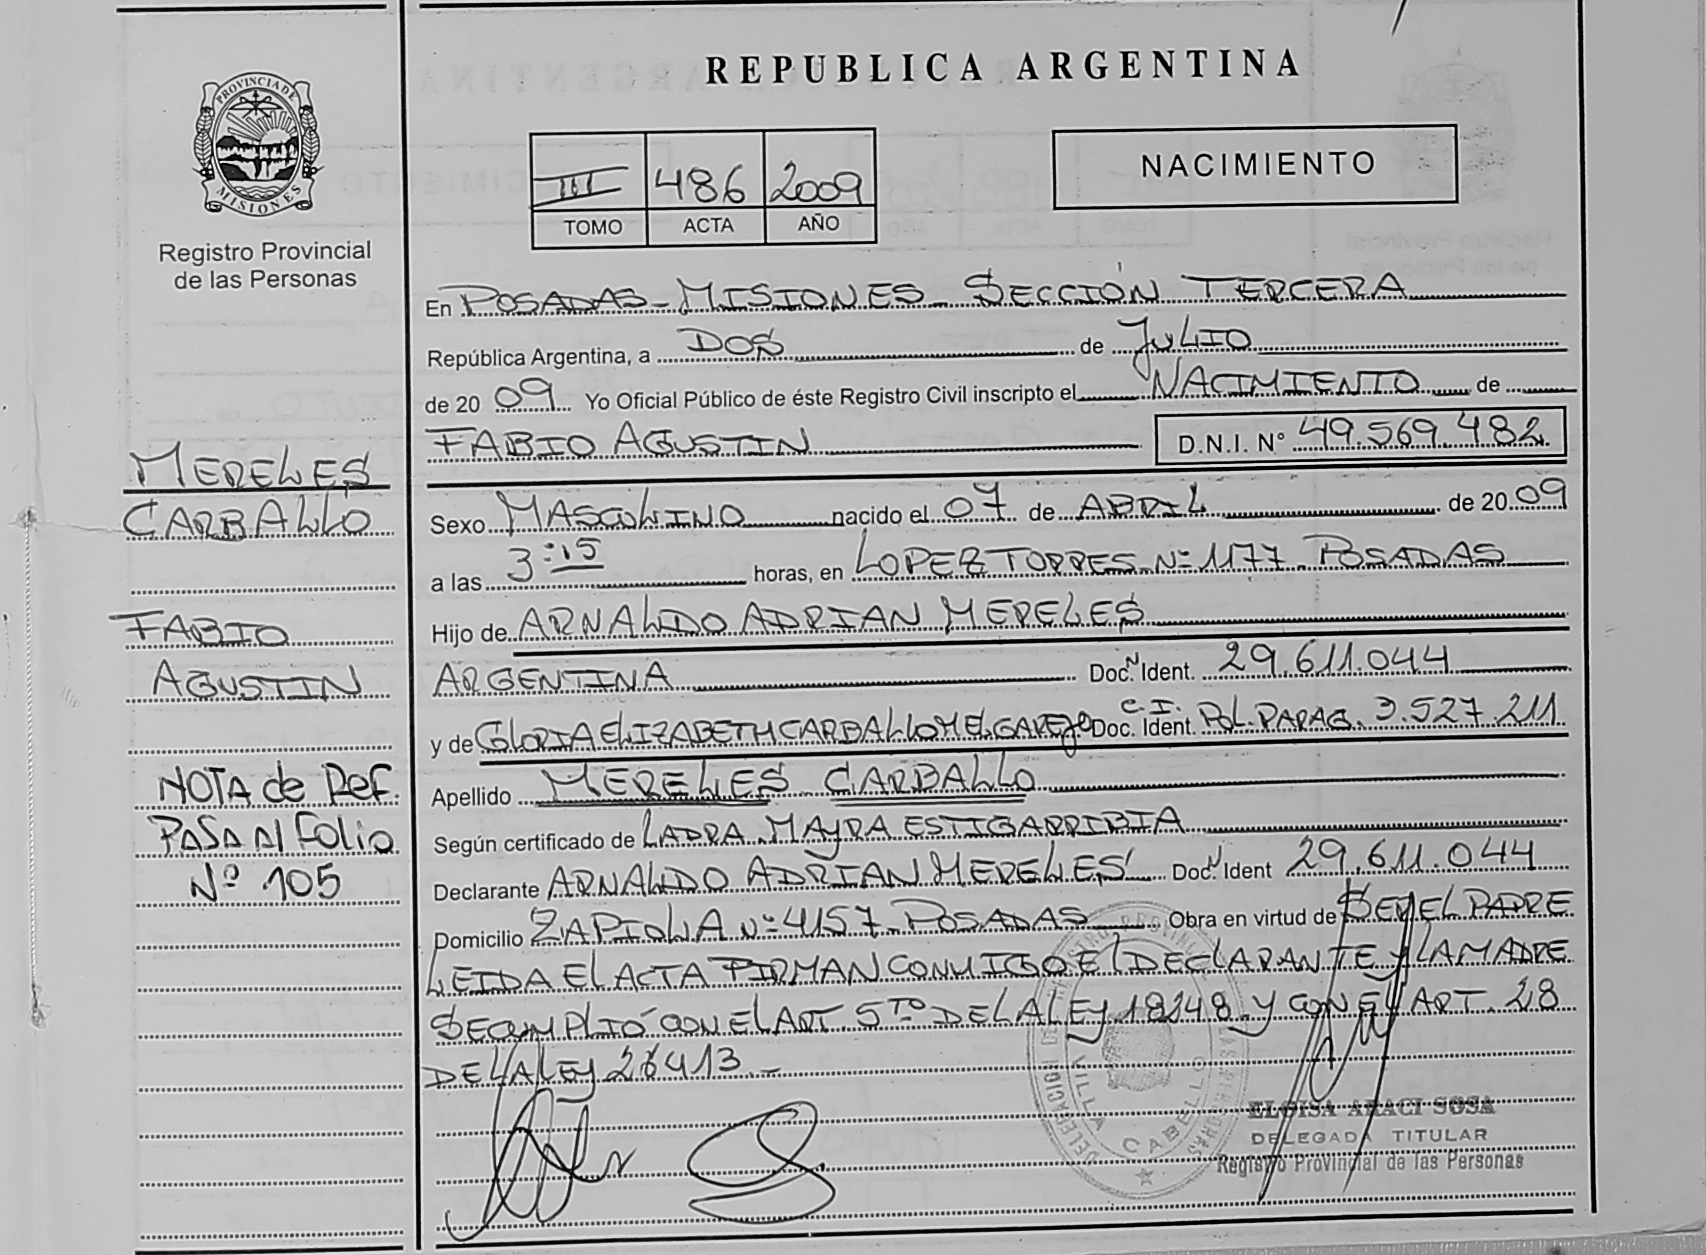 REPUBLICA ARGENTINA
PROVINCIA DE
MISIONES
Registro Provincial
de las Personas
III 486 2009
TOMO ACTA AÑO
NACIMIENTO
En POSADAS - MISIONES - SECCIÓN TERCERA
República Argentina, a DOS de JULIO
de 20 09 Yo Oficial Público de éste Registro Civil inscripto el NACIMIENTO de
FABIO AGUSTIN D.N.I. Nº 49.569.482
Sexo MASCULINO nacido el 07 de ABRIL de 20 09
a las 3:15 horas, en LOPEZ TORRES Nº 1177 - POSADAS
Hijo de ARNALDO ADRIAN MERELES
ARGENTINA Doc. N Ident. 29.611.044
y de GLORIA ELIZABETH CARBALLO MELGAREJO Doc. Ident. C.I. POL. PARAG. 3.527.211
Apellido MERELES CARBALLO
Según certificado de LADRA MAYRA ESTIGARRIBIA
Declarante ARNALDO ADRIAN MERELES Doc. N Ident 29.611.044
Domicilio ZAPIOLA Nº 4157 - POSADAS Obra en virtud de SER EL PADRE
LEIDA EL ACTA FIRMAN CONMIGO EL DECLARANTE Y LA MADRE
SE CUMPLIÓ CON EL ART. 5TO DE LA LEY 18248 Y CON EL ART. 28
DE LA LEY 26413.-
MERELES
CARBALLO
FABIO
AGUSTIN
NOTA de Ref.
PASA Al Folio
Nº 105
VILLA CABELLO
ELOISA ARACI SOSA
DELEGADA TITULAR
Registro Provincial de las Personas